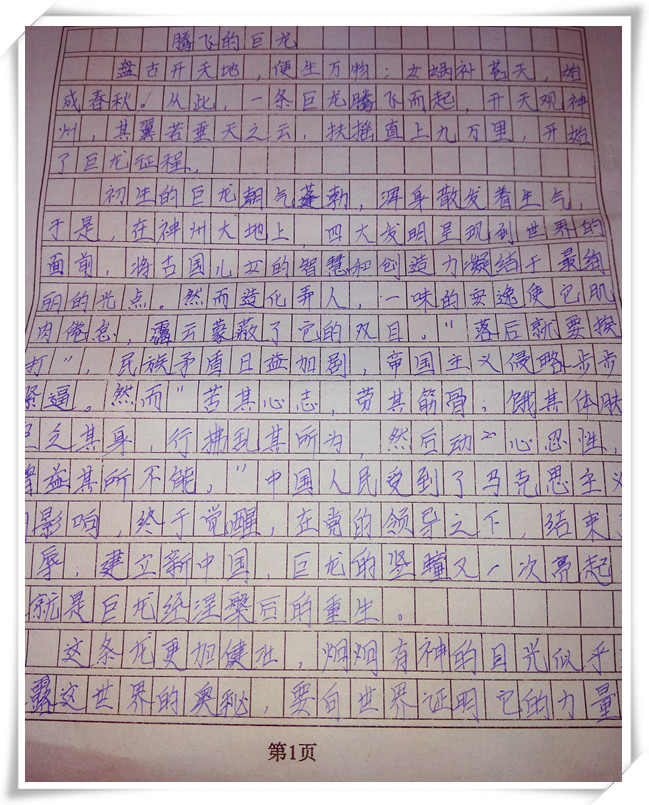 腾飞的巨龙
盘古开天地，便生万物；女娲补苍天，始
成春秋。从此，一条巨龙腾飞而起，开天观神
州，其翼若垂天之云，扶摇直上九万里，开始
了巨龙征程。
初生的巨龙朝气蓬勃，浑身散发着生气，
于是，在神州大地上，四大发明呈现到世界的
面前，将古国儿女的智慧和创造力凝结于最绚
丽的光点。然而造化弄人，一味的安逸使它肌
肉倦怠，云蒙蔽了它的双目。"落后就要挨
打"，民族矛盾日益加剧，帝国主义侵略步步
紧逼。然而"苦其心志，劳其筋骨，饿其体肤
乏其身，行拂乱其所为，然后动心忍性，
益其所不能。"中国人民受到了马克思主义
影响，终于觉醒，在党的领导之下，结束
辱，建立新中国，巨龙的竖瞳又一次亮起
就是巨龙经涅槃后的重生。
这条龙更加健壮，炯炯有神的目光似乎
这世界的奥秘，要向世界证明它的力量
第1页